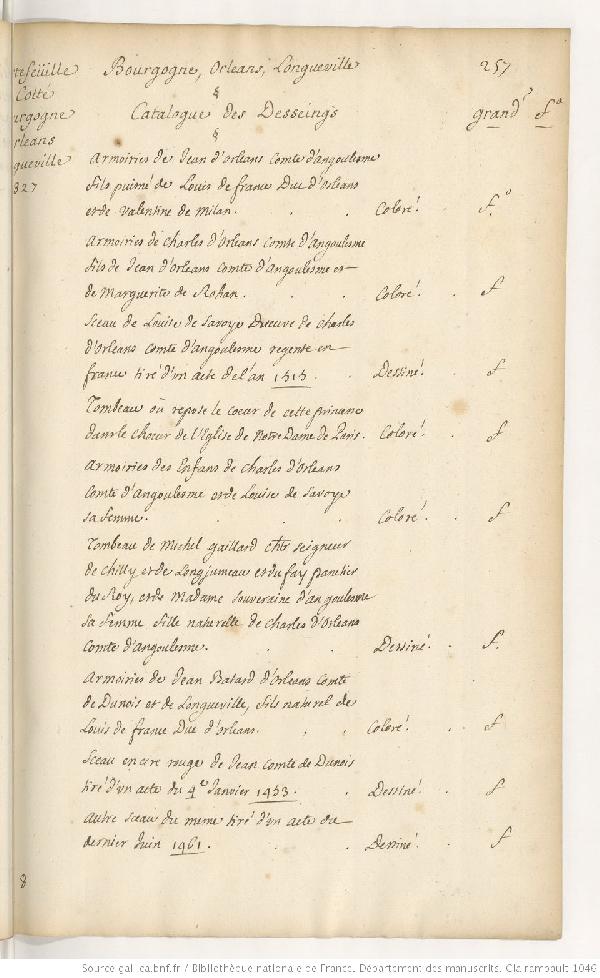 tefeüille
Cotté
urgogne
rleans
gueville
327
Bourgogne, Orleans, Longueville
257
&
Catalogue des Desseings
grand^r f^o
&
Armoiries de Jean d'Orleans Comte d'angoulesme
fils puisné de Louis de france Duc d'Orleans
et de Valentine de Milan. . . Coloré. f.^o
Armoiries de Charles d'Orleans Comte d'Angoulesme
fils de Jean d'Orleans Comte d'Angoulesme et
de Marguerite de Rohan. . . Coloré. . f
Sceau de Louise de Savoye Dveuve de Charles
d'Orleans Comte d'angoulesme regente en
france tiré d'un acte de l'an 1515. . Dessiné. . f
Tombeau où repose le coeur de cette princesse
dans le choeur de l'Eglise de Notre Dame de Paris. Coloré. . f
Armoiries des Enfans de Charles d'Orleans
Comte d'Angoulesme et de Louise de Savoye
sa femme. . . . Coloré. . f
Tombeau de Michel gaillard ch^er seigneur
de Chilly et de Longjumeau et du fay panetier
du Roy, et de Madame souveraine d'angoulesme
sa femme fille naturelle de Charles d'Orleans
Comte d'angoulesme. . . Dessiné. . f.
Armoiries de Jean Batard d'Orleans Comte
de Dunois et de Longueville, fils naturel de
Louis de france Duc d'orleans. . . Coloré. . . f
Sceau en cire rouge de Jean Comte de Dunois
tiré d'un acte du 4^e Janvier 1453. . Dessiné. . f
autre sceau du meme tiré d'un acte du
dernier Juin 1461. . . Dessiné. . f
8
Source gallica.bnf.fr / Bibliothèque nationale de France. Département des manuscrits. Clairambault 1046